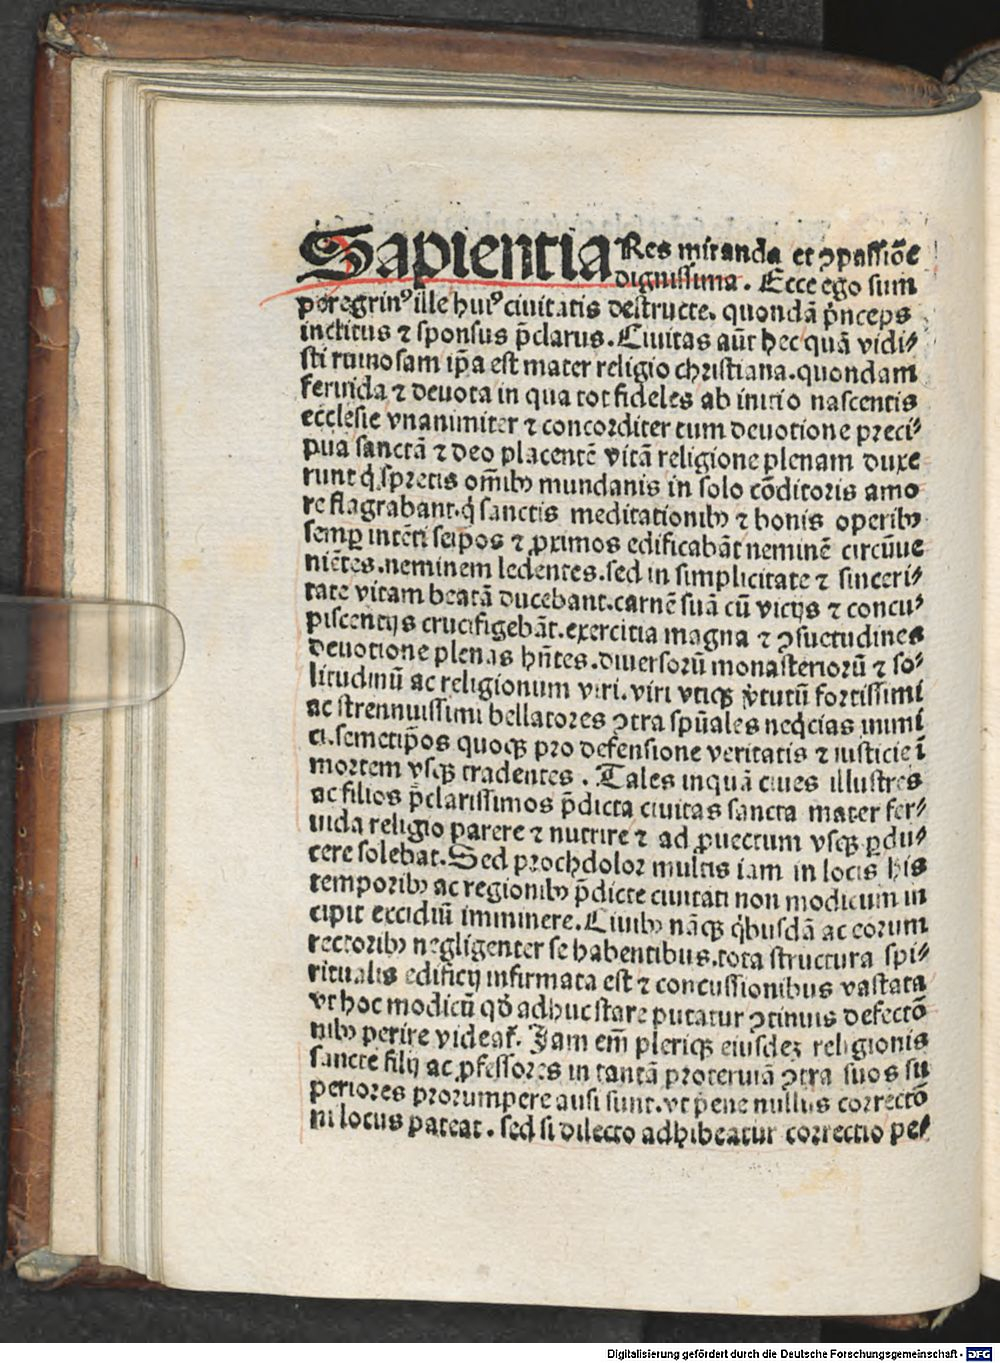 Sapientia Res miranda et ↄpassiōe
dignissima . Ecce ego sum
peregrinꝰ ille huiꝰ ciuitatis destructe. quondā p̄nceps
inclitus ⁊ sponsus p̄clarus. Ciuitas aūt hec quā vidi⸗
sti ruinosam ip̄a est mater religio christiana. quondam
feruida ⁊ deuota in qua tot fideles ab initio nascentis
ecclesie vnanimiter ⁊ concorditer cum deuotione preci⸗
pua sanctā ⁊ deo placentē vitā religione plenam duxe
runt q̇ spretis om̄ibꝫ mundanis in solo cōditoris amo
re flagrabant. q̇ sanctis meditationibꝫ ⁊ bonis operibꝫ
semꝑ intēti seip̄os ⁊ ꝓximos edificabāt neminē circūue
niētes. neminem ledentes. sed in simplicitate ⁊ sinceri⸗
tate vitam beatā ducebant. carnē suā cū vicijs ⁊ concu⸗
piscentijs crucifigebāt. exercitia magna ⁊ ↄsuetudines
deuotione plenas hn̄tes. diuersorū monasteriorū ⁊ so⸗
litudinū ac religionum viri. viri vtiqꝫ v̓tutū fortissimi
ac strennuissimi bellatores ↄtra spūales neq̇cias inimi
ci. semetip̄os quoqꝫ pro defensione veritatis ⁊ iusticie ī
mortem vsqꝫ tradentes . Tales inquā ciues illustres
ac filios p̄clarissimos p̄dicta ciuitas sancta mater fer⸗
uida religio parere ⁊ nutrire ⁊ ad ꝓuectum vsqꝫ ꝑdu⸗
cere solebat. Sed prochdolor multis iam in locis his
temporibꝫ ac regionibꝫ p̄dicte ciuitati non modicum in
cipit excidiū imminere. Ciuibꝫ nāqꝫ q̇busdā ac eorum
rectoribꝫ negligenter se habentibus. tota structura spi⸗
ritualis edificij infirmata est ⁊ concussionibus vastata
vt hoc modicū qd̓ adhuc stare putatur ↄtinuis defectō
nibꝫ perire videat᷑. Jam em̄ pleriqꝫ eiusdeꝫ religionis
sancte filij ac ꝓfessores in tantā proteruiā ↄtra suos su
periores prorumpere ausi sunt. vt pene nullus correctō
ni locus pateat . sed si dilecto adhibeatur correctio pe⸗
Digitalisierung gefördert durch die Deutsche Forschungsgemeinschaft - DFG